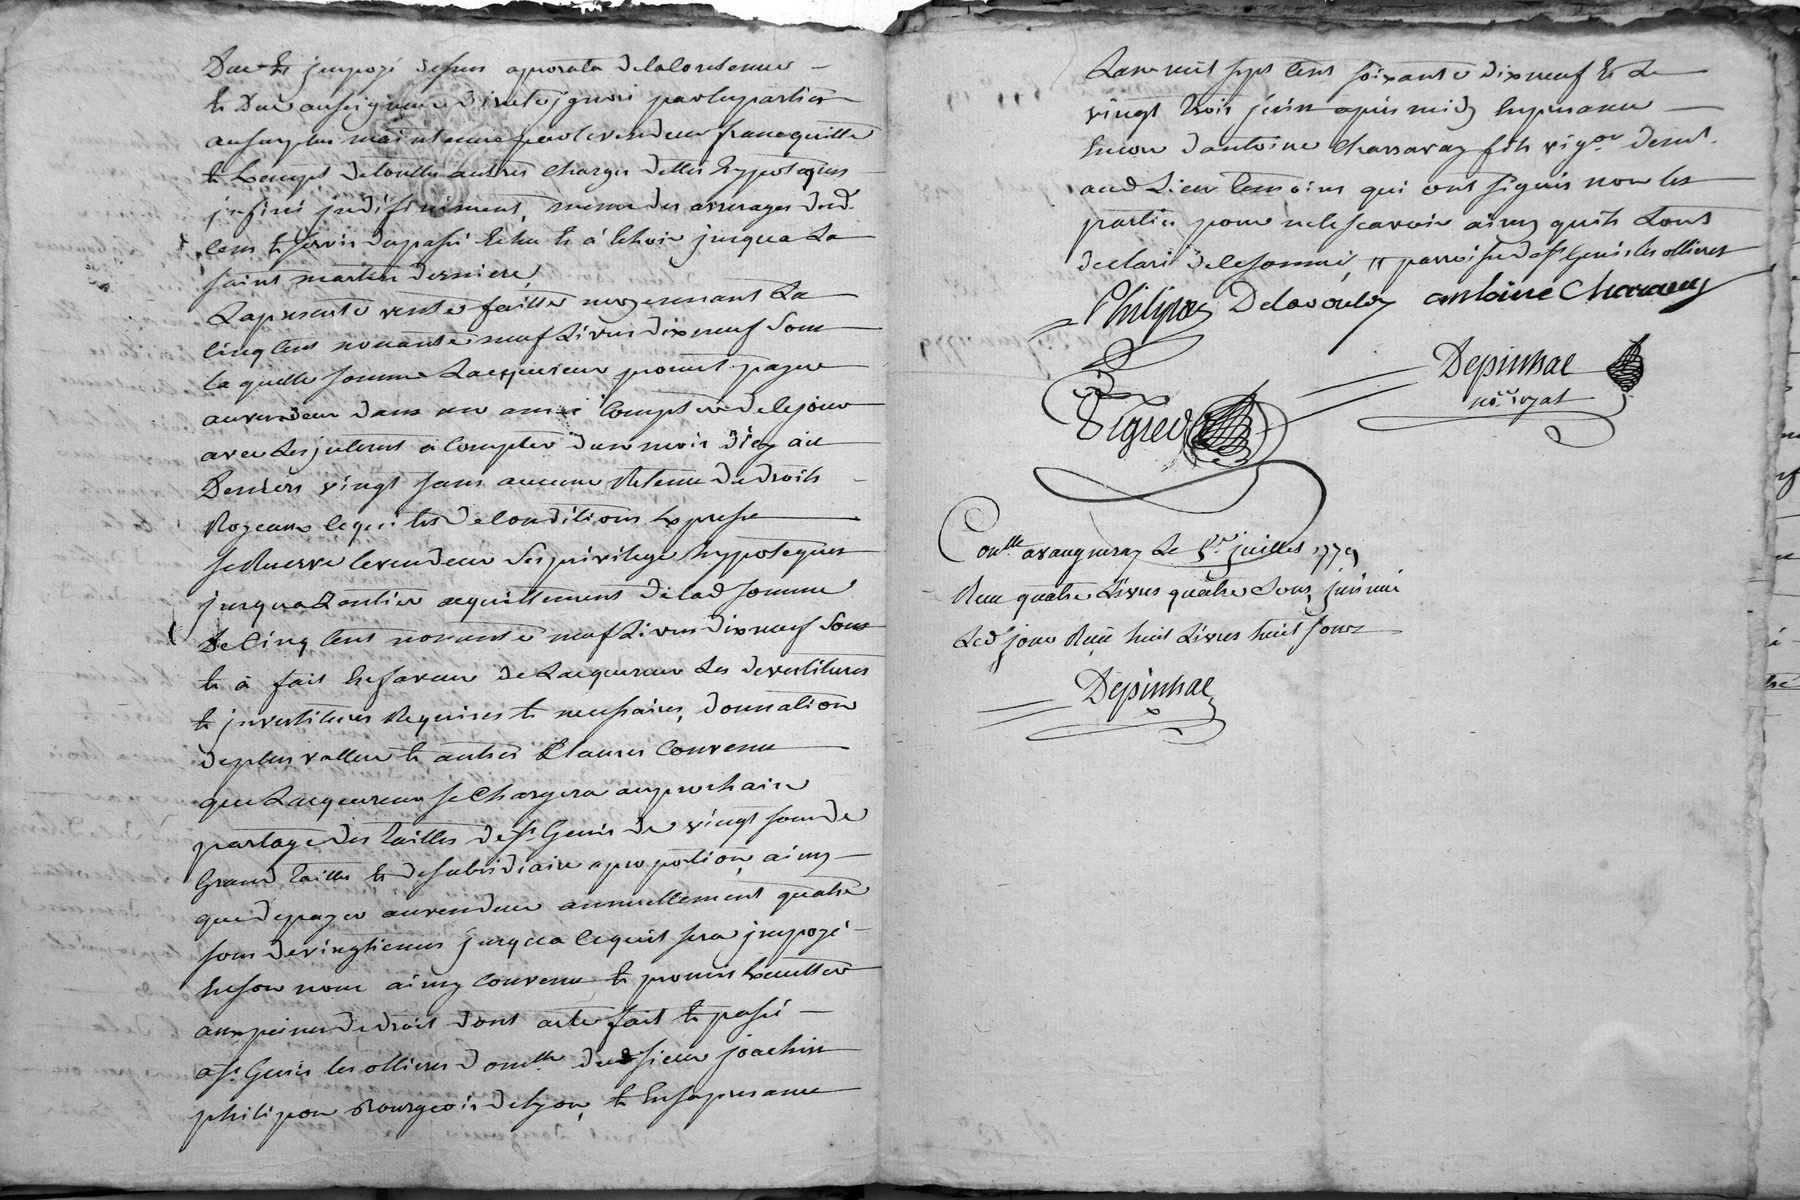 Due et jmpozé desus aprorata de la contenue
et Due au seigneur direte jgnoré par les parties
au surplus maintenue par le vendeur franc quitte
et Exempt de toutes autres charges dettes hypoteques
jusques jndéfiniment, meme des arrerages dud.
Cens et servis du passé Echu et á Echoir jusqua La
saint martin derniere,
La presente vente faitte moyennant La
Cinq Cent nonante neuf Livres dix neuf Sous
la quelle somme Lacquereur promet payer
au vendeur dans un année Comptée de ce jour
avec Les jnterets á Compter du
Deniers vingt sans aucune Retenue de droits
Royeaux Ce qui est De conditions Expresse
se Reserve le vendeur Ses privilege hypoteques
jusqua Lentier acquittement de lad somme
De Cinq Cent nonante neuf Livres dix neuf Sous
et á fait En faveur de Lacquereur Les devestitures
et jnvestitures Requises et necessaires, donnation
de plus vallue et autres Clauses Convenu
que Lacquereur se Chargera au prochain
partage des tailles de st Genis de vingt sous de
Grand taille et de subsidiaire a proportion, ainsy
que de payer au vendeur annuellement quatre
sous de vingtiemes jusqua ce quil sera jmpozé
En son nom ainsy convenu et promis Executter
aux peines de droit dont acte fait et passé
a st. Genis les ollieres domlle. dud sieur joachin
philipon Bourgeois de Lyon, et En sa presence
Lan mil sept Cent soixante dix neuf et Le
vingt trois juin apres midy En presence
Encore d'antoine Charavay fils vigon. demt.
aud Lieu temoins qui ont signés non les
parties pour ne le scavoir ainsy quils Lont
declaré de ce sommé, " parroisse de st Genis les ollieres
Philipon Delavoulez antoine Charavay
Vigred
Depinhac
nore. royal
Conlle. a vaugneray Le 5e. juillet 1779
Reçu quatre Livres quatre Sous, jnsinué
Led. jour Reçu huit Livres huit sous
Depinhac